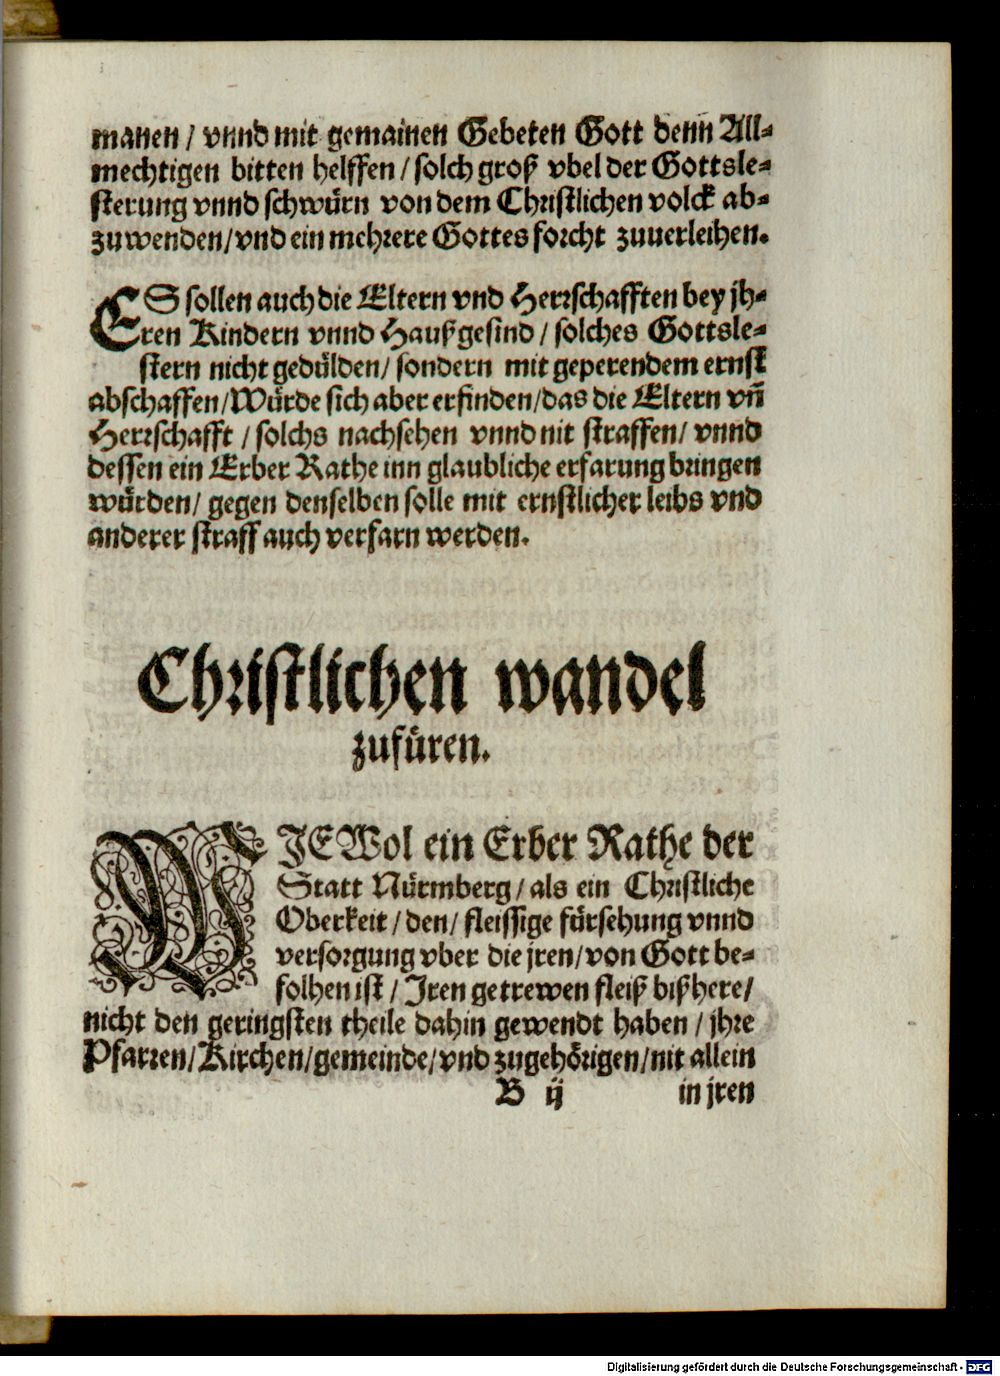 manen / vnnd mit gemainen Gebeten Gott denn All-
mechtigen bitten helffen / solch groß vbel der Gottsle-
sterung vnnd schwürn von dem Christlichen volck ab-
zuwenden/vnd ein mehrere Gottes forcht zuuerleihen.
ES sollen auch die Eltern vnd Herrschafften bey jh-
ren Kindern vnnd Haußgesind / solches Gottsle-
stern nicht gedülden/ sondern mit geperendem ernst
abschaffen/Würde sich aber erfinden/das die Eltern vñ
Herrschafft / solchs nachsehen vnnd nit straffen/ vnnd
dessen ein Erber Rathe inn glaubliche erfarung bringen
würden/ gegen denselben solle mit ernstlicher leibs vnd
anderer straff auch verfarn werden.
Christlichen wandel
zufüren.
WJE Wol ein Erber Rathe der
Statt Nürmberg / als ein Christliche
Oberkeit / den / fleissige fürsehung vnnd
versorgung vber die jren/von Gott be-
folhen ist / Jren getrewen fleiß bißhere/
nicht den geringsten theile dahin gewendt haben / jhre
Pfarren/Kirchen/gemeinde/vnd zugehörigen/nit allein
B ij in jren
Digitalisierung gefördert durch die Deutsche Forschungsgemeinschaft - DFG